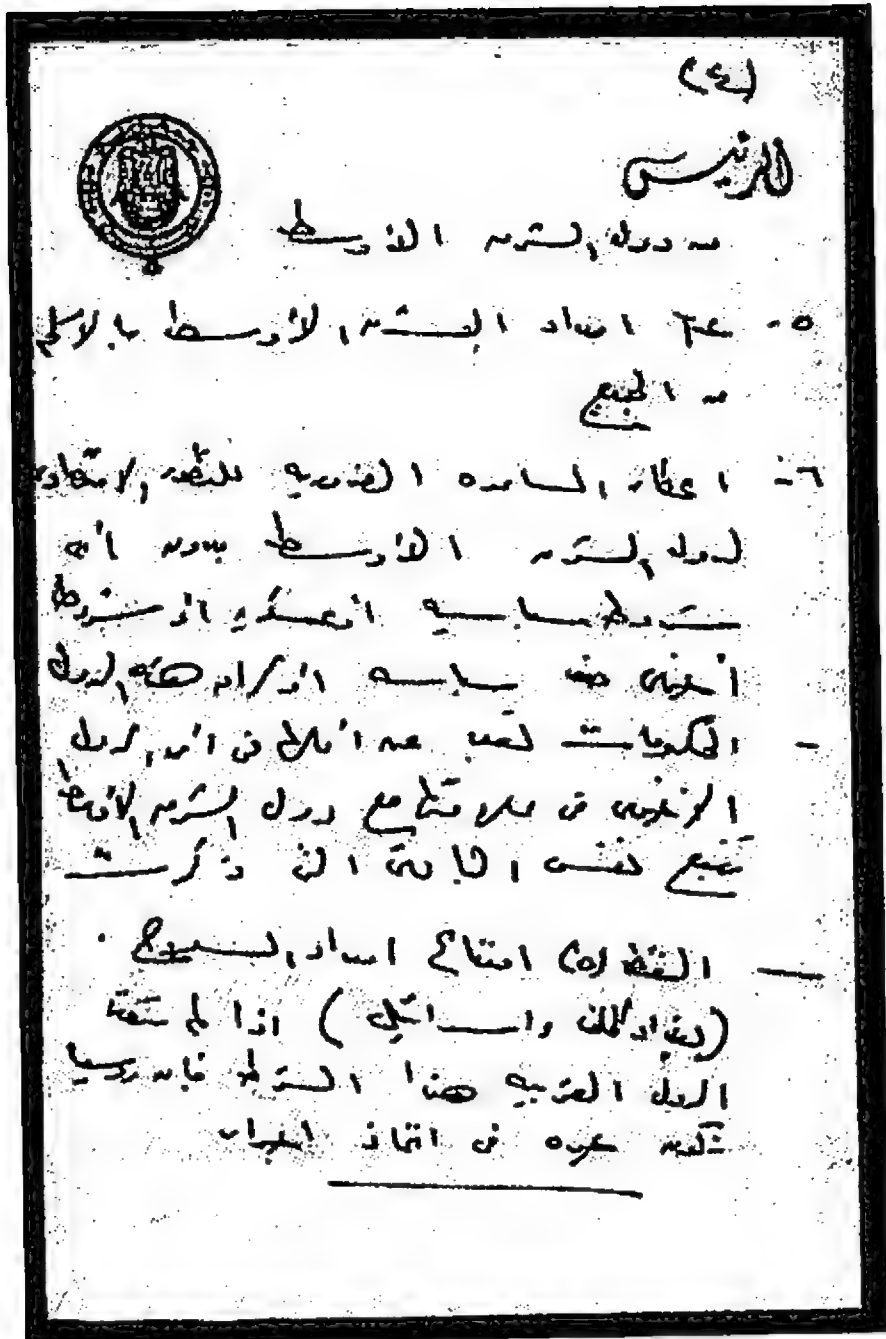 (٤)
الرئيس
من دول الشرق الأوسط
٥- عدم امداد الشرق الأوسط بالاسلحه
من الجميع
٦- اعطاء المساعده الضروريه للتطور الاقتصادى
لدول الشرق الأوسط بدون أيه
شروط سياسيه أو عسكريه أو شروط
أخرى ضد سياسه أو كرامه هذه الدول
- الحكومات تعبر عن أملها فى أن الدول
الأخرى فى علاقتها مع دول الشرق الأوسط
تتبع نفس المبادئ التى ذكرت
— النقطه (٥) امتناع امداد السلاح
(بغداد واسرائيل) اذا لم تنفذ
الدول الغربيه هذا الشرط فإن روسيا
تكون حره فى اتخاذ